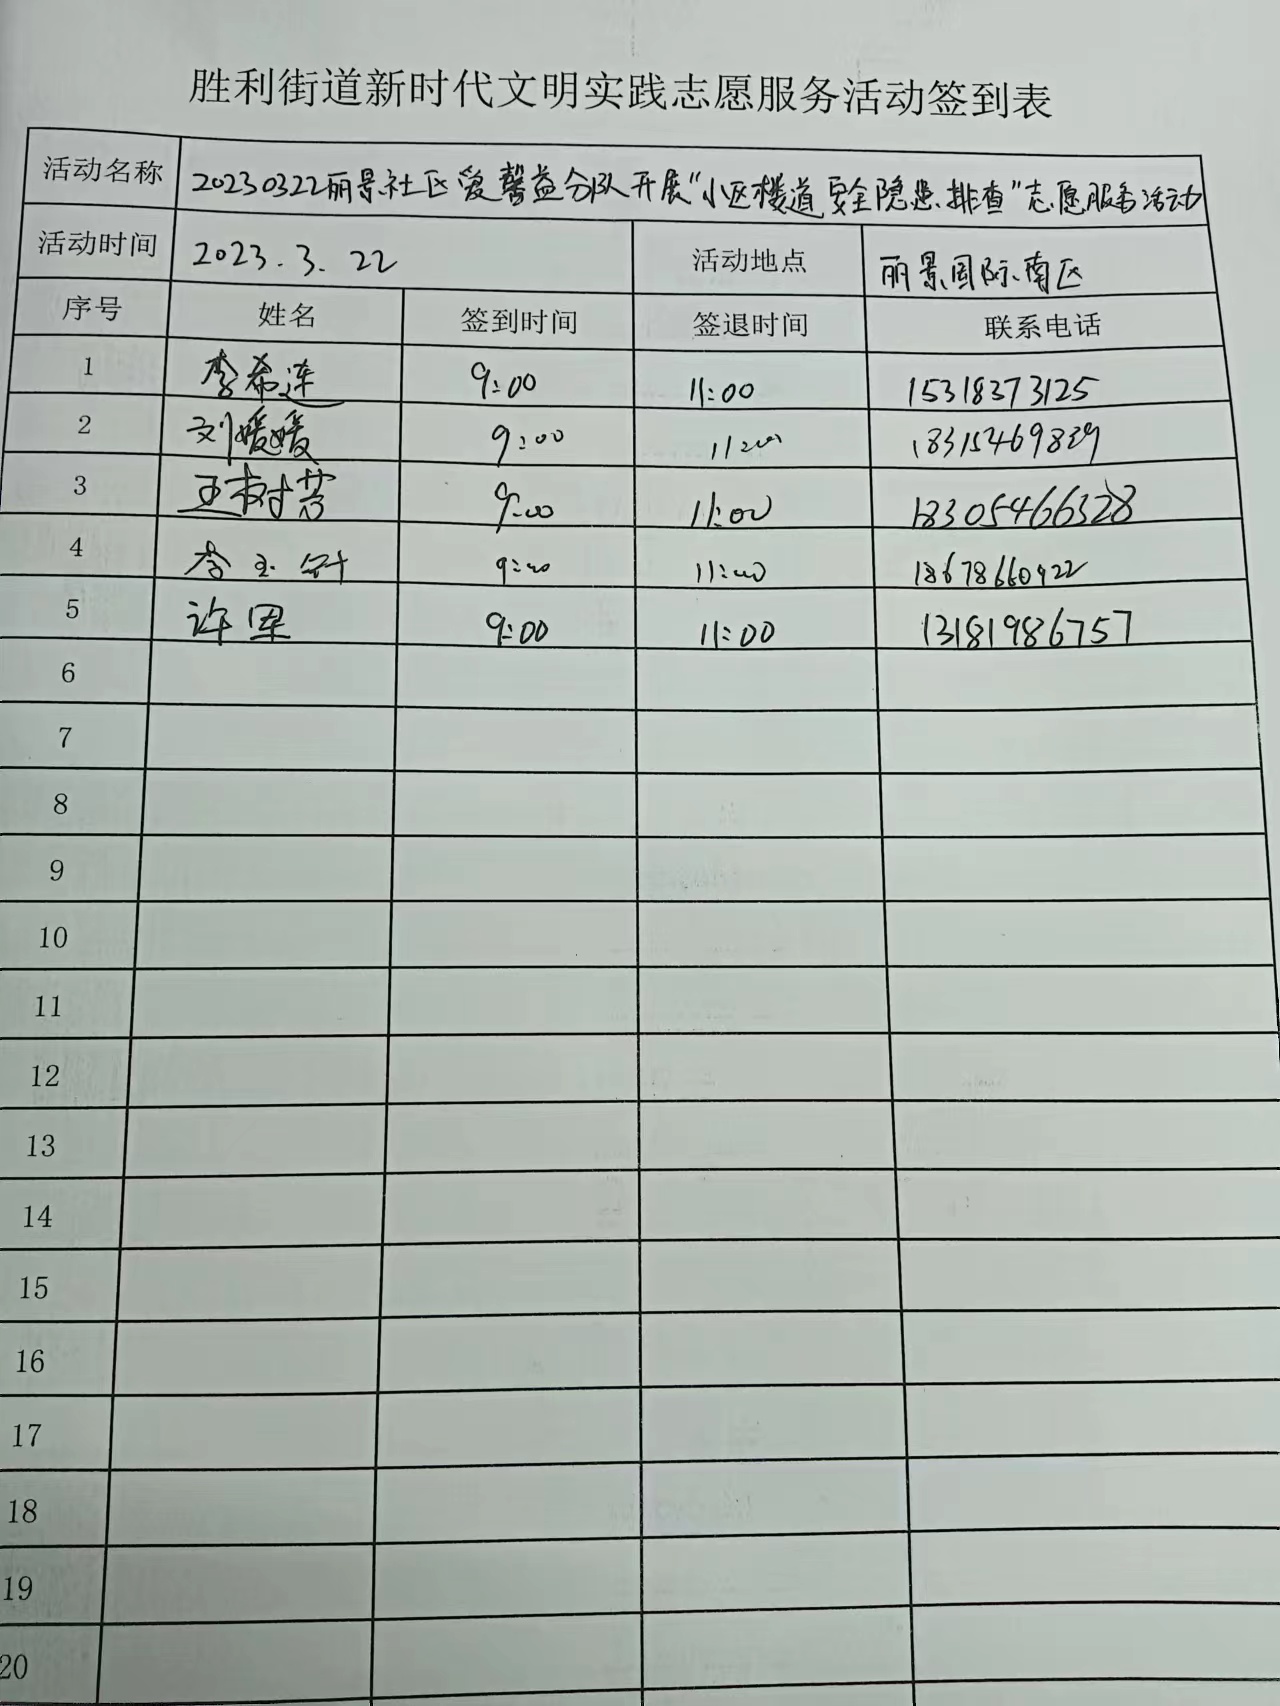 胜利街道新时代文明实践志愿服务活动签到表
活动名称 20230322丽景社区爱馨益分队开展“小区楼道安全隐患排查”志愿服务活动
活动时间 2023.3.22 活动地点 丽景国际南区
序号 姓名 签到时间 签退时间 联系电话
1 李希连 9:00 11:00 15318373125
2 刘媛媛 9:00 11:00 18315469839
3 王树营 9:00 11:00 18305466328
4 李玉 9:00 11:00 18678660922
5 许 9:00 11:00 13181986757
6
7
8
9
10
11
12
13
14
15
16
17
18
19
20